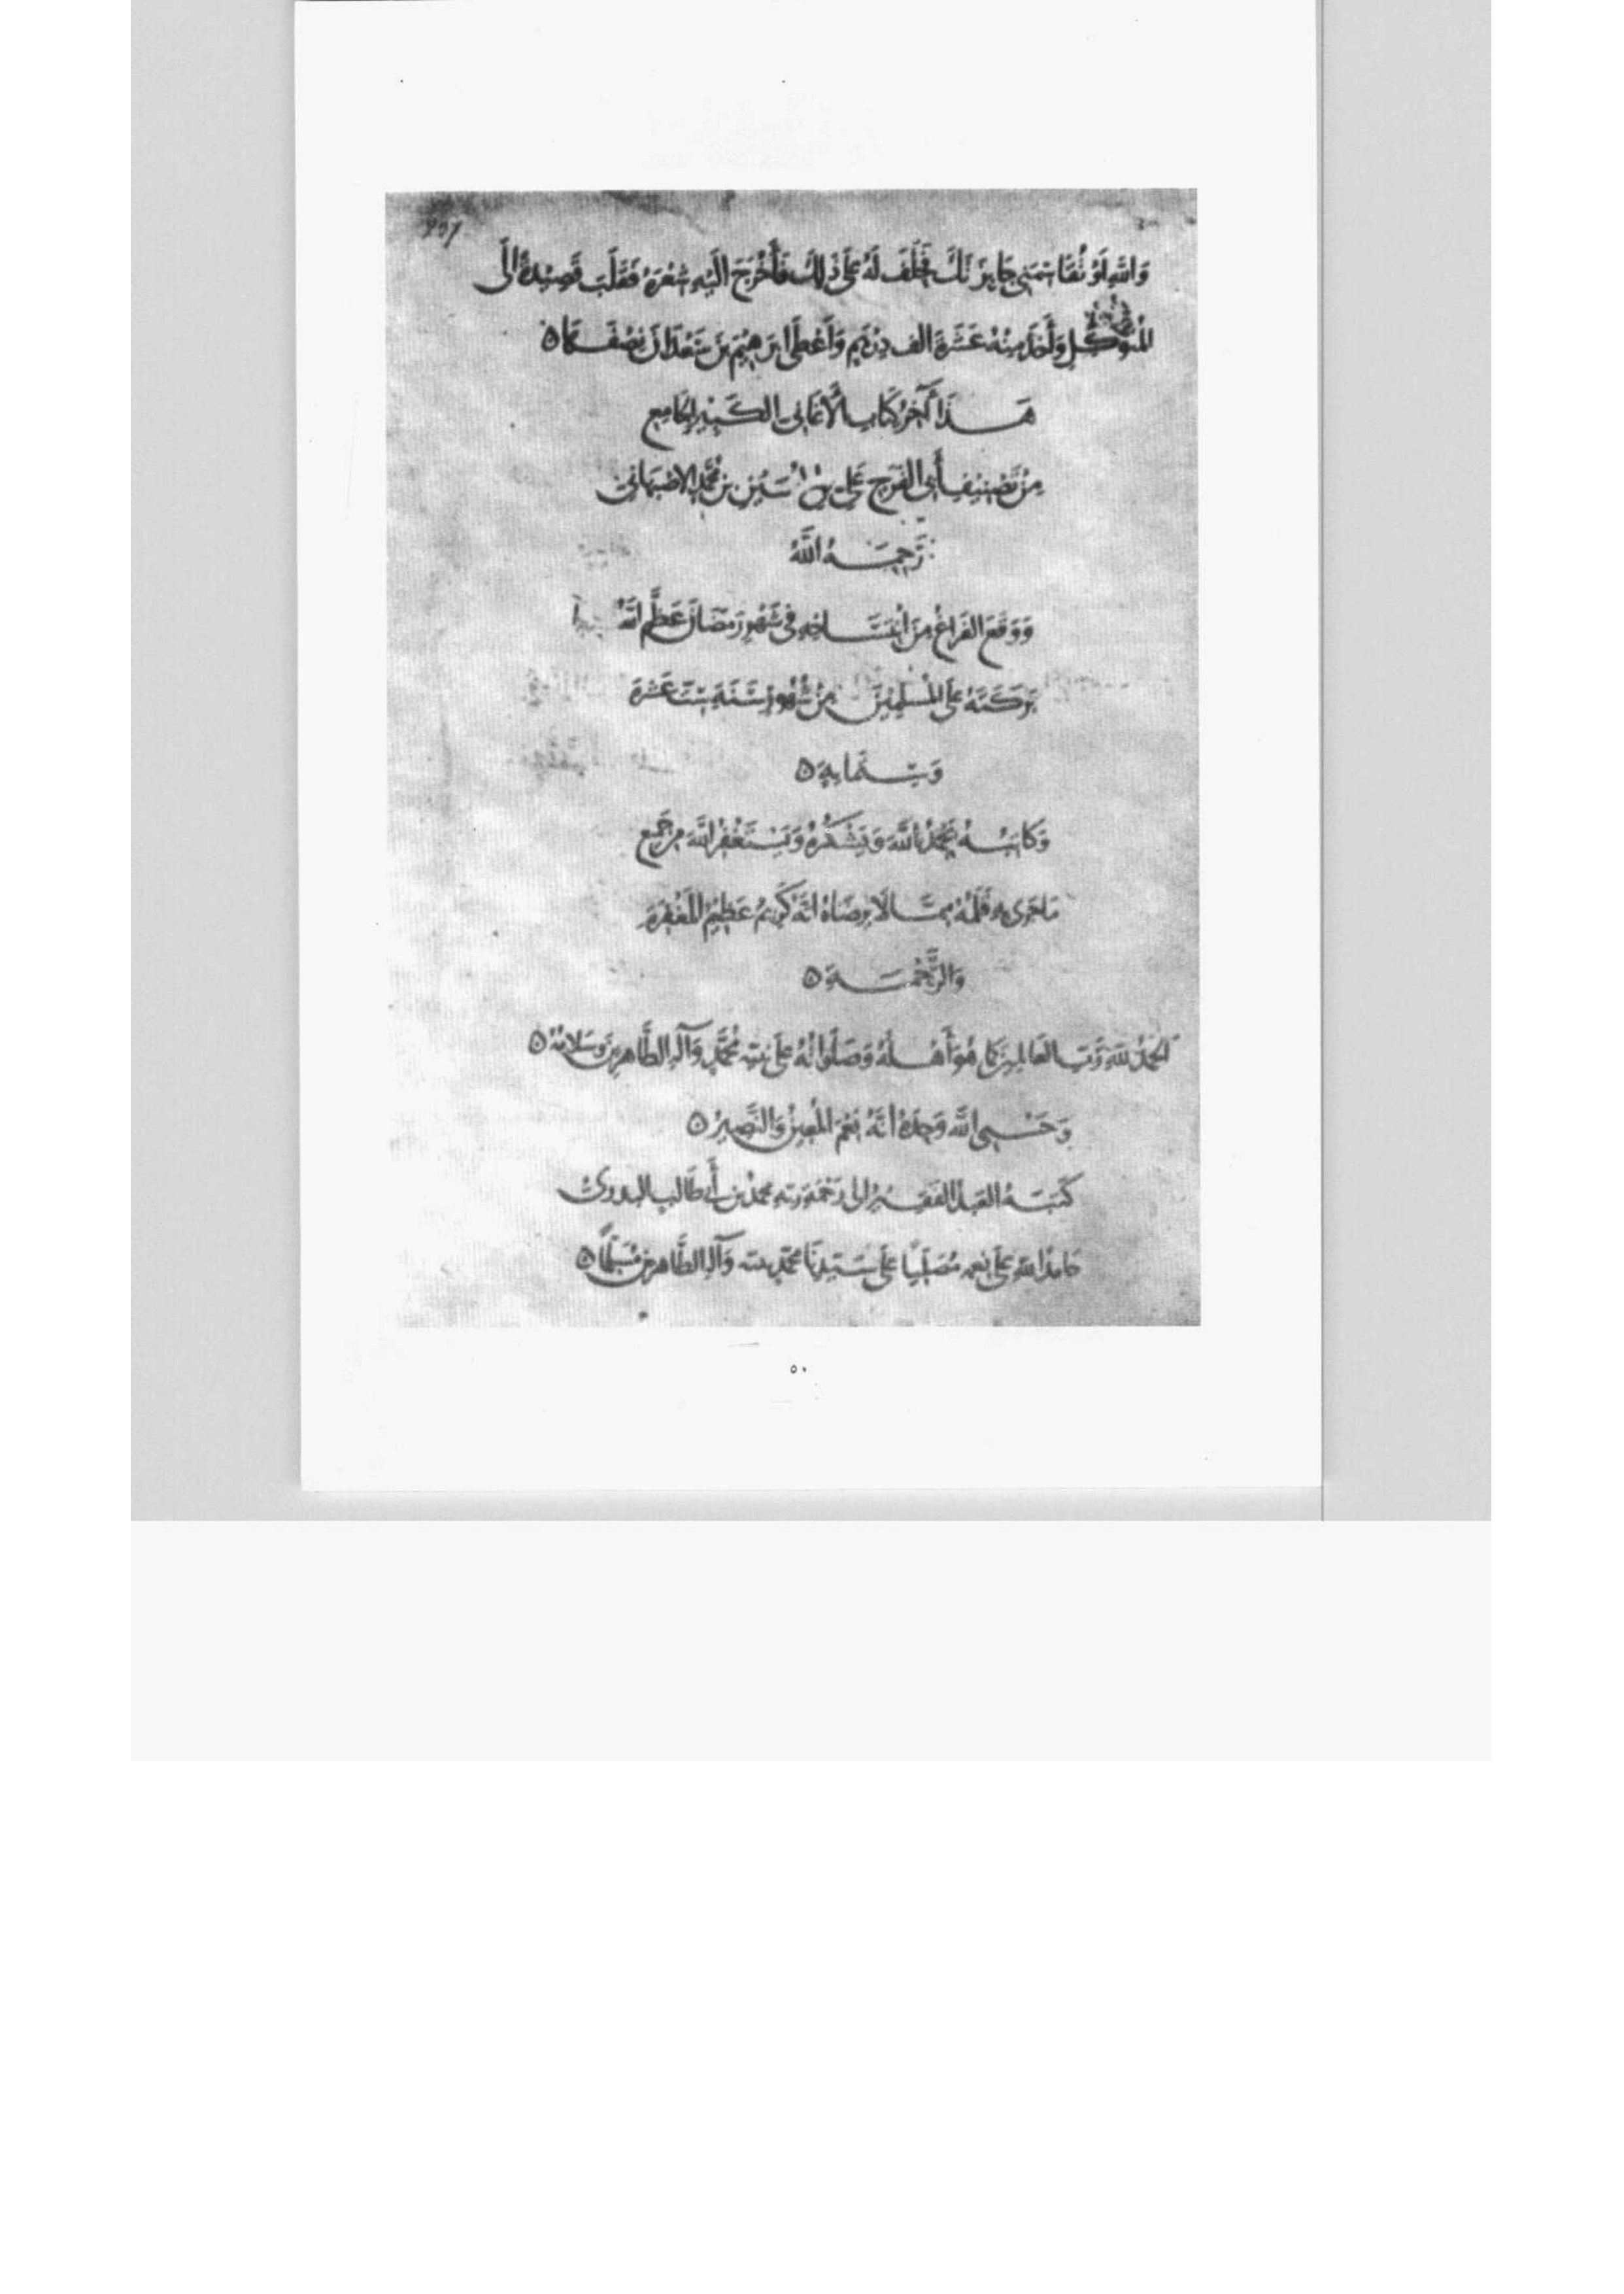 207
وَاللهِ لَوْ تُقَاسِمَنِي جَايِزَتَكَ فَحَلَفَ لَهُ عَلَى ذٰلِكَ فَأَخْرَجَ الَيْهِ شِعْرَهُ فَقَلَبَ قَصِيْدَةً الَى
المُتَوَكِّلِ وَأَخَذَ مِنْهُ عَشَرَةَ الف دِرْهَمٍ وَأَعْطَى ابْرَهِيْمَ بْنَ سَعْدَانَ نِصْفَهَا ه
هَذَا آخِرُ كِتَابِ الأَغَانِي الكَبِيْرِ الجَامِعِ
مِنْ تَصْنِيْفِ أَبِي الفَرَجِ عَلِي بْنِ الحُسَيْنِ بن مُحَمَّدٍ الاصْبَهَانِيّ
رَحِمَهُ اللَّهُ
وَوَقَعَ الفَرَاغُ مِنَ انْتِسَاخِهِ فِي شَهْرِ رَمَضَانَ عَظَّمَ اللَّهُ
بَرَكَتَهُ عَلَى المُسْلِمِيْنَ مِنْ شُهُورِ سَنَةِ سِتَّ عَشْرَةَ
وَسِتَّمَايِةٍ ه
وَكَاتِبُهُ يَحْمَدُ اللَّهَ وَيَشْكُرُهُ وَيَسْتَغْفِرُ اللَّهَ مِنْ جَمِيْعِ
مَا جَرَى بِهِ قَلَمُهُ مِمَّا لَا يَرْضَاهُ انَّهُ كَرِيْمٌ عَظِيْمُ المَغْفِرَةِ
وَالرَّحْمَةِ ه
الحَمْدُ للهِ رَبِّ العَالَمِيْنَ كَمَا هُوَ أَهْلُهُ وَصَلَوَاتُهُ عَلَى نَبِيِّهِ مُحَمَّدٍ وَآلِهِ الطَّاهِرِيْنَ وَسَلامُهُ ه
وَحَسْبِيَ اللَّهُ وَحْدَهُ انَّهُ نِعْمَ المُعِيْنُ وَالنَّصِيْرُ ه
كَتَبَهُ العَبْدُ الفَقِيْرُ الى رَحْمَةِ رَبِّهِ محمدُ بن أَبِي طَالِبٍ البدرىُّ
حَامِدًا للهِ عَلَى نِعَمِهِ مُصَلِّيًا عَلَى سَيِّدِنَا مُحَمَّدٍ نبيّه وَآلِهِ الطَّاهِرِيْنَ مُسَلِّمًا ه
٥٠